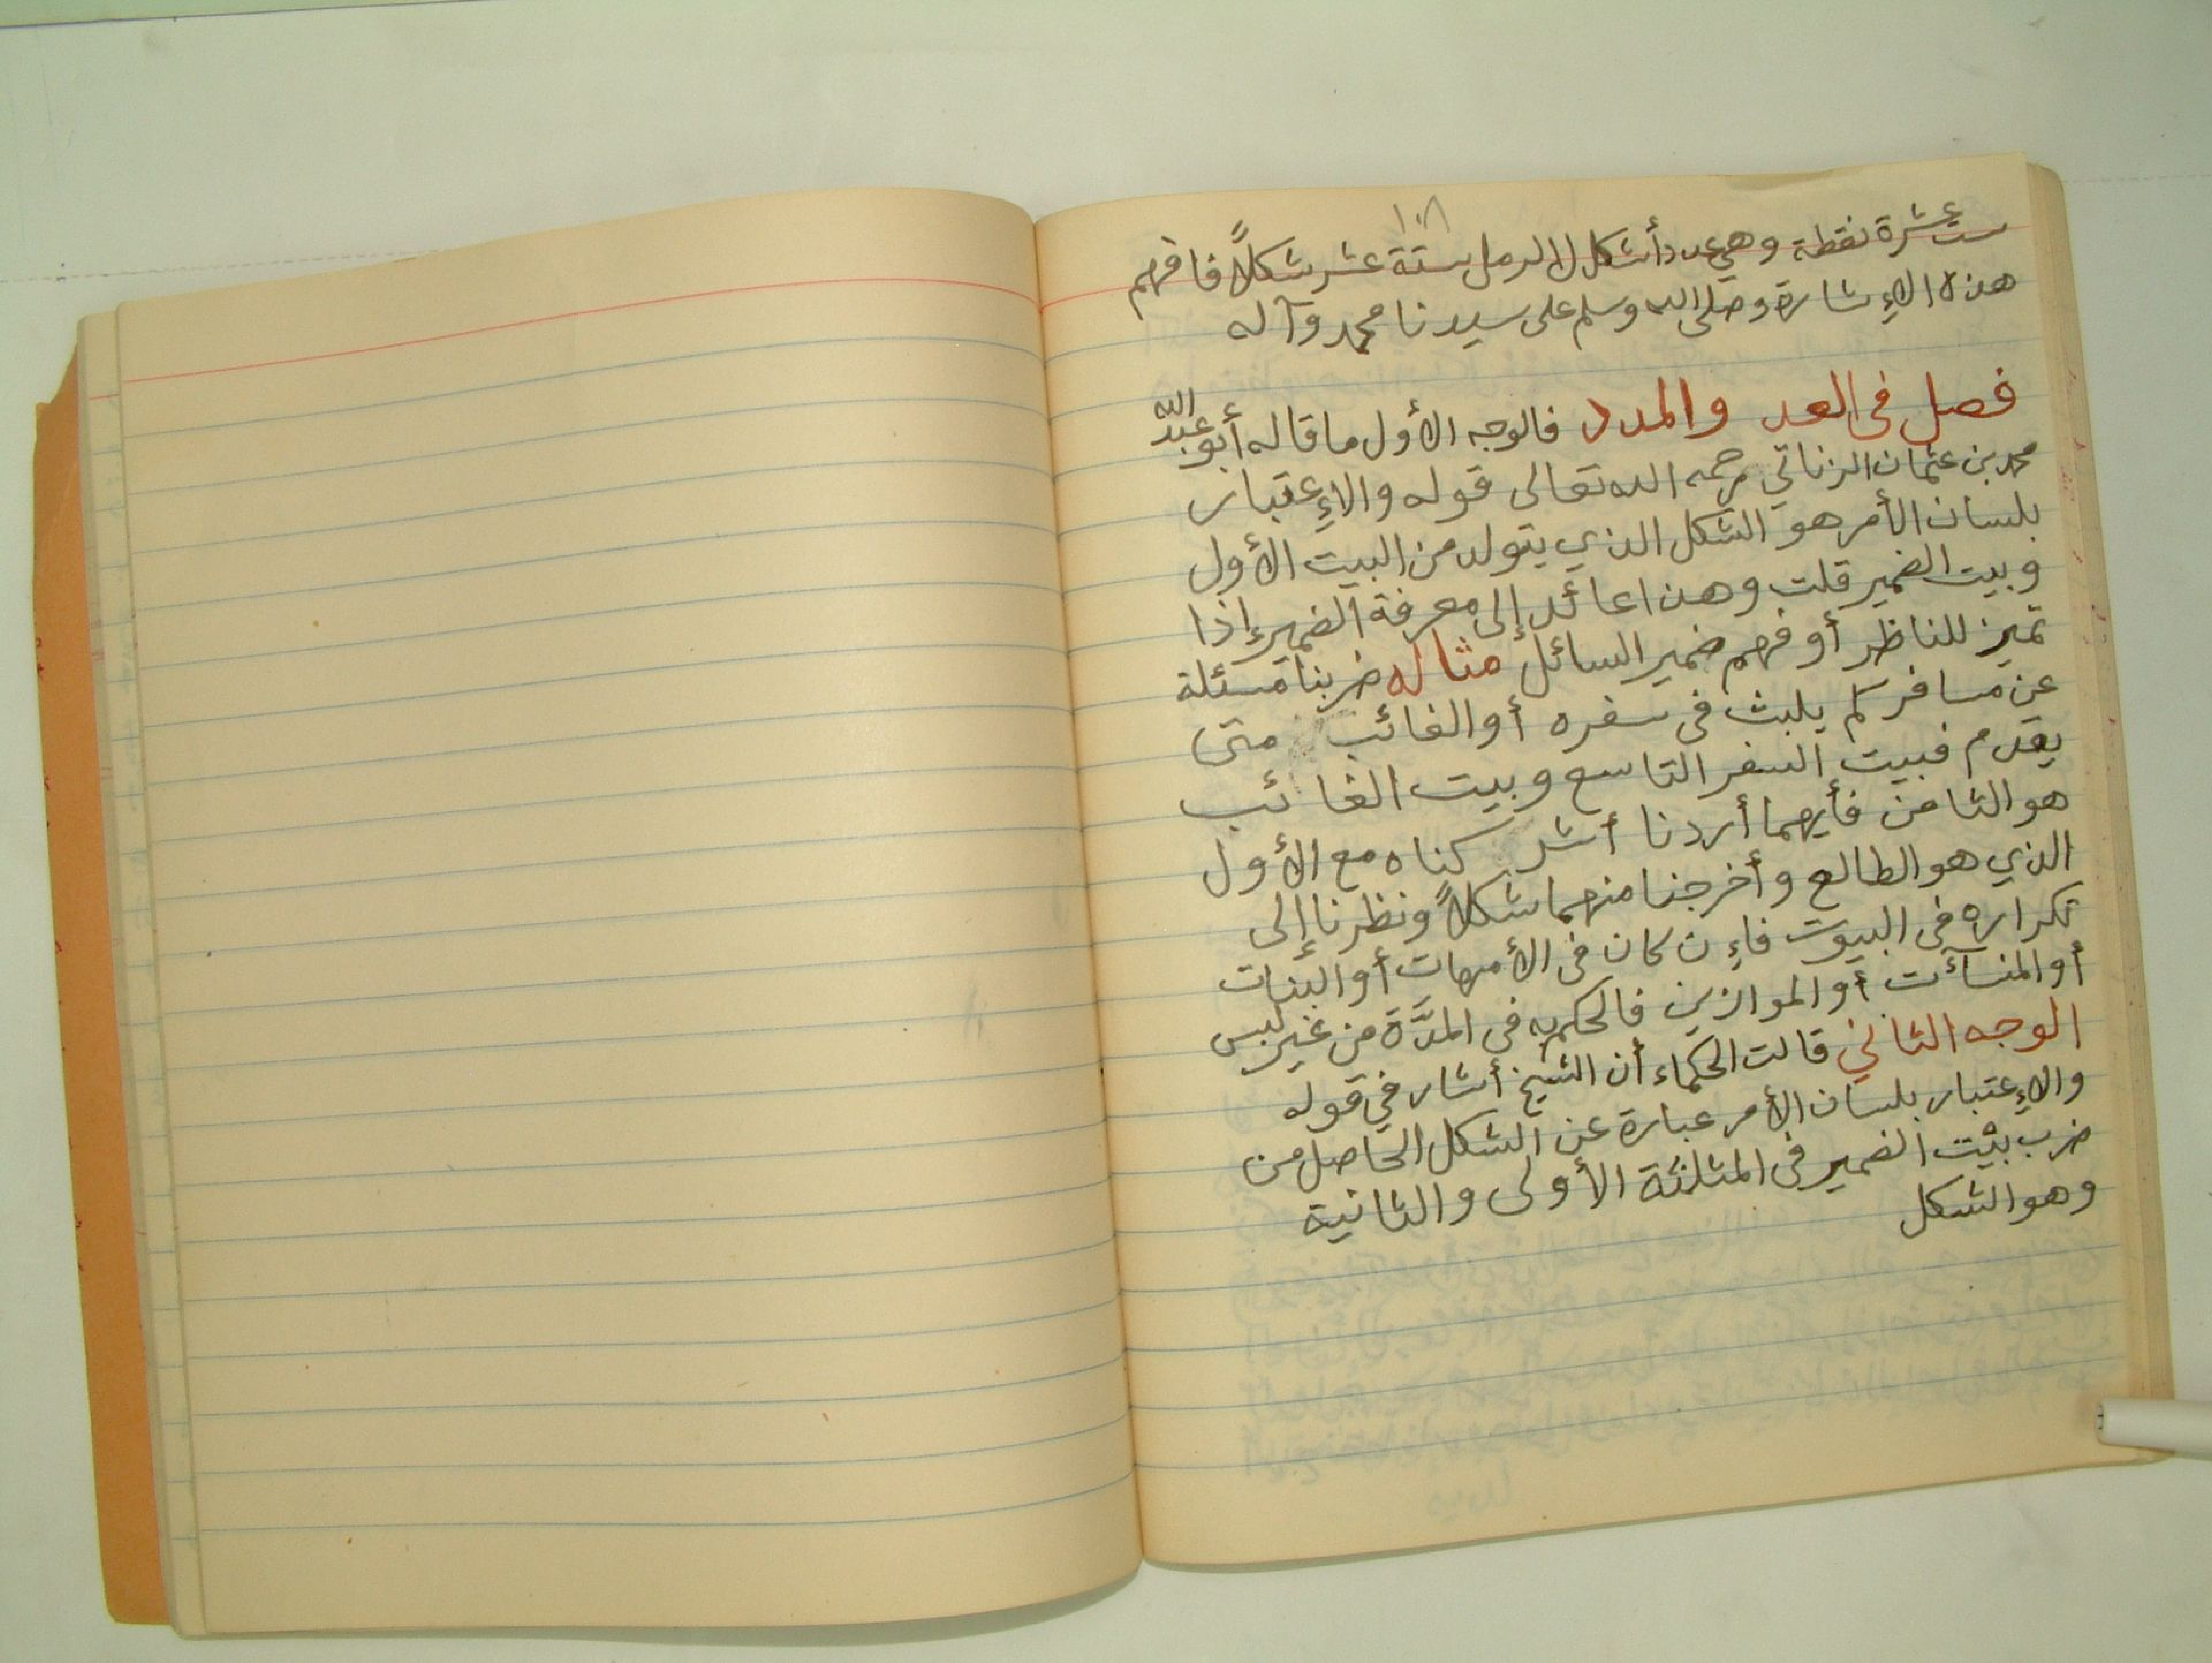 ١٠٨
ست عشرة نقطة وهي عدد أشكال الرمل ستة عشر شكلاً فافهم
هذه الإشارة وصلى الله وسلم على سيدنا محمد وآله
فصل في العدد والمدد فالوجه الأول ما قاله أبو عبد الله
محمد بن عثمان الزناتي رحمه الله تعالى قوله والإعتبار
بلسان الأمر هو الشكل الذي يتولد من البيت الأول
وبيت الضمير قلت وهذا عائد إلى معرفة الضمير إذا
تميز للناظر أو فهم ضمير السائل مثاله ضربنا مسئلة
عن مسافر كم يلبث في سفره أو الغائب متى
يقدم فبيت السفر التاسع وبيت الغائب
هو الثامن فأيهما أردنا أشركناه مع الأول
الذي هو الطالع وأخرجنا منهما شكلاً ونظرنا إلى
تكراره في البيوت فإن كان في الأمهات أو البنات
أو المنسآت أو الموازين فالحكم به في المدَّة من غير لبس
الوجه الثاني قالت الحكماء أن الشيخ أشار في قوله
والإعتبار بلسان الأمر عبارة عن الشكل الحاصل من
ضرب بيت الضمير في المثلثة الأولى والثانية
وهو الشكل